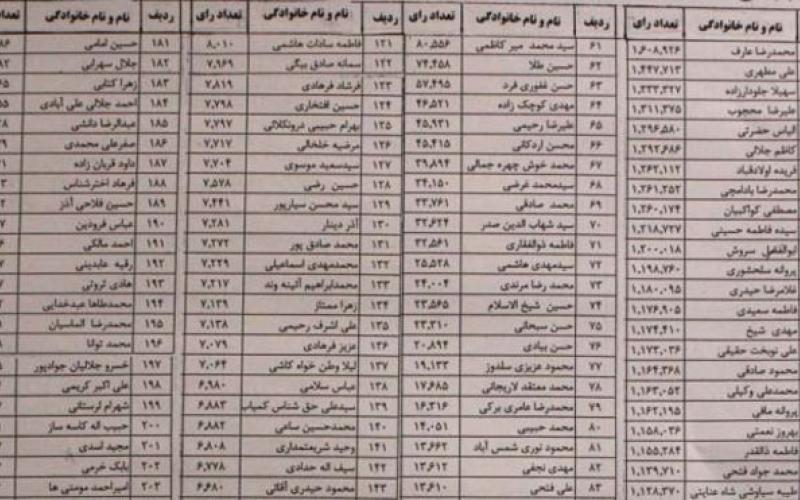 نام و نام خانوادگی تعداد رای ردیف نام و نام خانوادگی تعداد رای ردیف نام و نام خانوادگی تعداد رای ردیف نام و نام خانوادگی
محمدرضا عارف ۱,۶۰۸,۹۲۶ ۶۱ سید محمد میر کاظمی ۸۰,۵۵۶ ۱۲۱ فاطمه سادات هاشمی ۸,۰۱۰ ۱۸۱ حسین امامی
علی مطهری ۱,۴۴۷,۷۱۳ ۶۲ حسین طلا ۷۴,۴۵۸ ۱۲۲ سمانه صادق بیگی ۷,۹۶۹ ۱۸۲ جلال سهرابی
سهیلا جلودارزاده ۱,۳۳۳,۳۲۷ ۶۳ حسن غفوری فرد ۵۷,۴۹۵ ۱۲۳ فرشاد فرهادی ۷,۸۱۹ ۱۸۳ زهرا کتابی
علیرضا محجوب ۱,۳۱۱,۳۷۵ ۶۴ مهدی کوچک زاده ۴۶,۵۲۱ ۱۲۴ حسین افتخاری ۷,۷۹۸ ۱۸۴ احمد جلالی علی آبادی
الیاس حضرتی ۱,۲۹۶,۵۸۰ ۶۵ علیرضا رحیمی ۴۵,۹۳۱ ۱۲۵ بهرام حبیبی درونکلائی ۷,۷۹۷ ۱۸۵ عبدالرضا دانشی
کاظم جلالی ۱,۲۹۲,۶۸۶ ۶۶ محسن اردکانی ۴۵,۴۱۵ ۱۲۶ مرضیه خلخالی ۷,۷۱۷ ۱۸۶ صفرعلی محمدی
فریده اولادقباد ۱,۲۶۲,۱۱۲ ۶۷ محمد خوش چهره جمالی ۳۹,۸۹۴ ۱۲۷ سیدسعید موسوی ۷,۷۰۴ ۱۸۷ داود قربان زاده
محمدرضا بادامچی ۱,۲۶۱,۲۵۲ ۶۸ سیدمحمد غرضی ۳۴,۱۵۰ ۱۲۸ حسین رضی ۷,۵۷۸ ۱۸۸ فرهاد اخترشناس
مصطفی کواکبیان ۱,۲۶۰,۱۷۴ ۶۹ محمد صادقی ۳۳,۷۶۱ ۱۲۹ سید محسن سیارپور ۷,۴۴۱ ۱۸۹ حسین فلاحی آذر
سیده فاطمه حسینی ۱,۲۱۸,۷۲۷ ۷۰ سید شهاب الدین صدر ۳۲,۶۲۴ ۱۳۰ آذر دینار ۷,۲۸۱ ۱۹۰ عباس فرودین
ابوالفضل سروش ۱,۲۰۰,۰۱۸ ۷۱ فاطمه ذوالفقاری ۳۲,۵۶۱ ۱۳۱ محمد صادق پور ۷,۲۷۲ ۱۹۱ احمد مالکی
پروانه سلحشوری ۱,۱۹۸,۷۶۰ ۷۲ سیدمهدی هاشمی ۲۵,۵۲۸ ۱۳۲ محمدمهدی اسماعیلی ۷,۲۲۹ ۱۹۲ رقیه عابدینی
غلامرضا حیدری ۱,۱۸۰,۰۹۵ ۷۳ محمد رضا مرندی ۲۴,۰۰۴ ۱۳۳ محمدابراهیم آئینه وند ۷,۲۱۷ ۱۹۳ هادی ثروتی
فاطمه سعیدی ۱,۱۷۶,۹۰۵ ۷۴ حسین شیخ الاسلام ۲۳,۵۶۵ ۱۳۴ زهرا ممتاز ۷,۱۳۹ ۱۹۴ محمدطاها عبدخدایی
مهدی شیخ ۱,۱۷۴,۴۱۰ ۷۵ حسن سبحانی ۲۳,۳۱۰ ۱۳۵ علی اشرف رحیمی ۷,۱۳۸ ۱۹۵ محمدرضا الماسیان
علی نوبخت حقیقی ۱,۱۷۳,۰۳۶ ۷۶ حسن بیادی ۲۰,۸۹۴ ۱۳۶ عزیز فرهادی ۷,۰۷۹ ۱۹۶ محمد توانا
محمود صادقی ۱,۱۶۴,۳۶۸ ۷۷ محمود عزیزی سلدوز ۱۹,۱۳۳ ۱۳۷ لیلا وطن خواه کاشی ۷,۰۶۴ ۱۹۷ خسرو جلالیان جوادپور
محمدعلی وکیلی ۱,۱۶۳,۰۵۲ ۷۸ محمد معتقد لاریجانی ۱۷,۶۸۵ ۱۳۸ عباس سلامی ۶,۹۸۰ ۱۹۸ علی اکبر کریمی
پروانه مافی ۱,۱۶۲,۱۹۵ ۷۹ محمدرضا عامری برکی ۱۶,۳۱۶ ۱۳۹ سیدعلی حق شناس کمیاب ۶,۸۸۳ ۱۹۹ شهرام لرستانی
بهروز نعمتی ۱,۱۵۸,۰۳۶ ۸۰ محمد حبیبی ۱۴,۰۵۱ ۱۴۰ محمدحسین ساعی ۶,۸۸۲ ۲۰۰ حبیب اله کاسه ساز
فاطمه ذالقدر ۱,۱۵۵,۲۸۴ ۸۱ محمود نوری شمس آباد ۱۳,۶۶۲ ۱۴۱ وحید شریعتمداری ۶,۸۰۸ ۲۰۱ مجید اسدی
محمد جواد فتحی ۱,۱۳۹,۷۱۰ ۸۲ مهدی نجفی ۱۳,۶۱۲ ۱۴۲ سیف اله حدادی ۶,۷۷۸ ۲۰۲ بابک خرمی
طیبه سیاوشی شاه عنایتی ۱,۱۲۸,۳۷۰ ۸۳ علی فتحی ۱۳,۶۱۰ ۱۴۳ محمود حیدری آقائی ۶,۶۸۰ ۲۰۳ امیراحمد مومنی ها